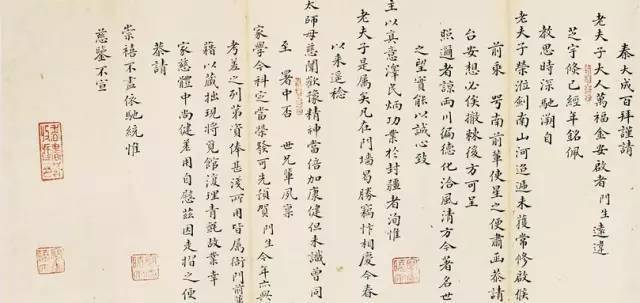 秦大成百拜謹請
老夫子大人萬福金安啟者門生遠違
芝宇條已經年銘佩
教思時深馳溯自
老夫子榮涖劍南山河迢遞未獲常修啟候
前東粵南前輩使星之便肅函恭請
台安想必俟撤棘後方可呈
照邇者諒兩川徧德化洽風清方今著名世
之望實能以誠心致
主以真意澤民炳功業於封疆者洵惟
老夫子是屬矣凡在門墻曷勝竊忭相慶今春
以來遙稔
太師母慈闈歡豫精神當倍加康健但未識曾同
至署中否世兄輩夙稟
家學今科定當榮發可先預賀門生今年六與
考差之列第資俸甚淺所用皆屬衙門前輩
藉以藏拙現將覓館復理青氈故業幸
家慈體中尚健差用自慰茲因走摺之便
恭請
崇禧不盡依馳統惟
慈鑒不宣